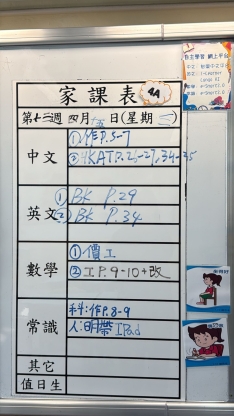 家課表 4A
第十三週 四月十五日(星期三)
中文
①作P.5-7
②HKATP.25-27,34-35
英文
① BK P.29
② BK P.34
數學
①價工
②工P.9-10+改
常識
科:作P.8-9
人:明帶IPad
其它
值日生
自主學習 網上平台